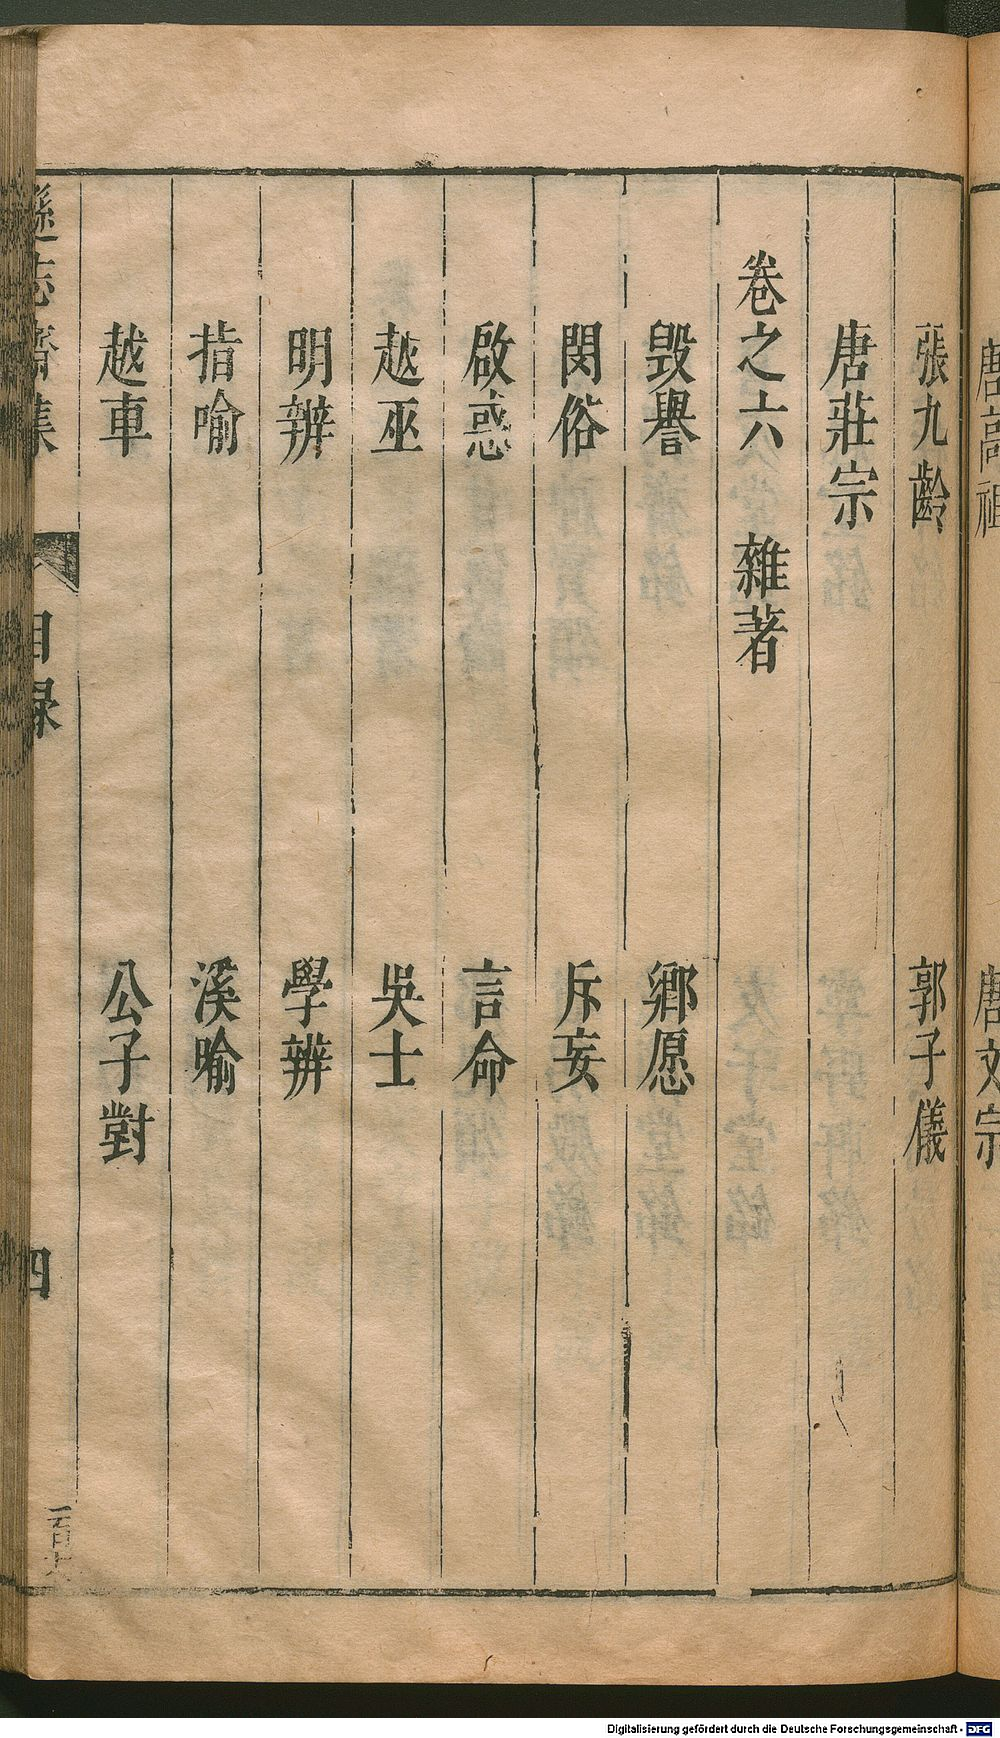 唐高祖 唐文宗
張九齡 郭子儀
唐莊宗
卷之六 雜著
毀譽 鄉愿
閔俗 斥妄
啟惑 言命
越巫 吳士
明辨 學辨
指喻 溪喻
越車 公子對
遜志齋集 目録 四
Digitalisierung gefördert durch die Deutsche Forschungsgemeinschaft - DFG